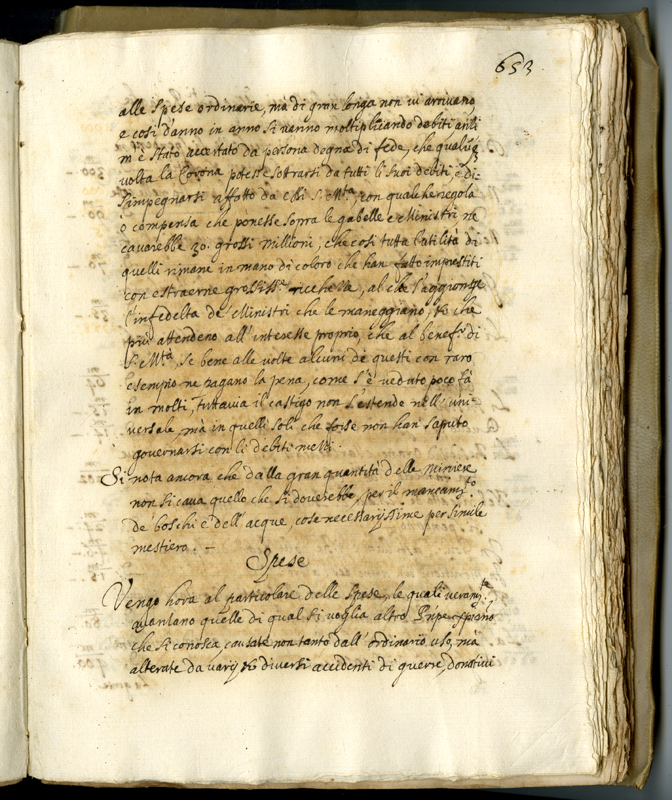 653.
alle spese ordinarie, mà di gran longa non vi arrivano,
e così d'anno in anno si vanno moltiplicando debiti
m'è stato accertato da persona degna di fede, che
volta la Corona potesse sottrarsi da tutti li suoi debiti, e di
simpegnarsi affatto da essi S. M.tà, con qualche regola
ò compensa che ponesse sopra le gabelle e Ministri, ne
cavarebbe 20. grossi millioni; che così tutta l'utilità di
quelli rimane in mano di coloro che han fatto imprestiti
con estraerne grossiss.e ricchezze, al che s'aggionge
l'infedeltà de Ministri che le maneggiano, che
più attendono all'interesse proprio, che al benef.o di
S. M.tà, se bene alle volte alcuni de questi con raro
esempio ne pagano la pena, come s'è veduto poco fà
in molti, tuttavia il castigo non s'estende nell'uni-
versale, mà in quelli soli che forse non han saputo
governarsi con li debiti mezzi.
Si nota ancora che dalla gran quantità delle miniere
non si cava quello che si doverebbe, per il mancam.to
de boschi e dell'acque, cose necessarijssime per simile
mestiero. –
Spese
Vengo hora al particolare delle spese, le quali veram.te
avanzano quelle di qual si voglia altro Prñpe
che si conosca, causate non tanto dall'ordinario uso, mà
alterate da varij et diversi accidenti di guerre, donativi